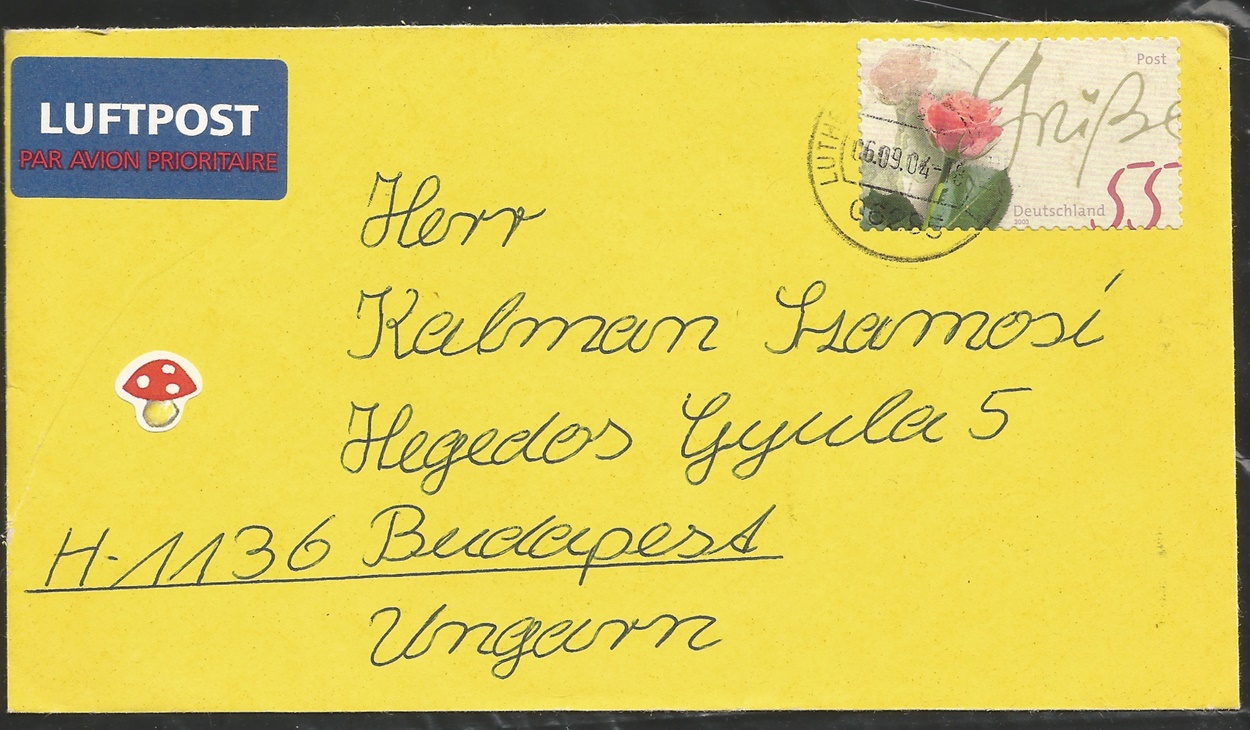 LUFTPOST
PAR AVION PRIORITAIRE
Post
Grüße
Deutschland
2003
55
06.09.04-18
Herr
Kalman Szamosi
Hegedos Gyula 5
H-1136 Budapest
Ungarn